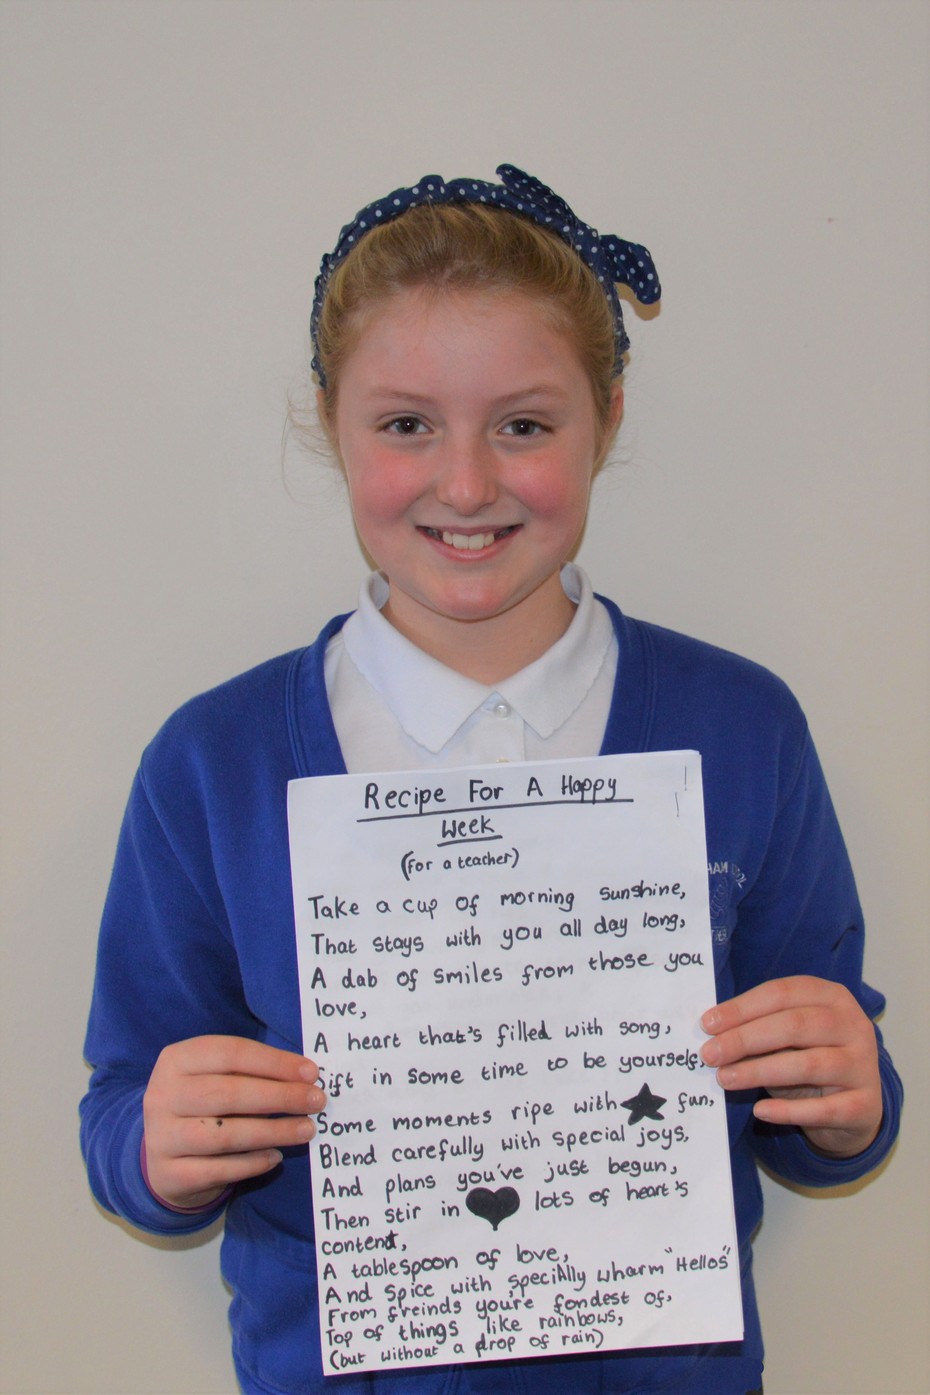 Recipe For A Happy
Week
(for a teacher)
Take a cup of morning sunshine,
That stays with you all day long,
A dab of smiles from those you
love,
A heart that's filled with song,
Sift in some time to be yourself,
Some moments ripe with fun,
Blend carefully with special joys,
And plans you've just begun,
Then stir in lots of heart's
content,
A tablespoon of love,
And spice with specially wharm "Hellos"
From freinds you're fondest of,
Top of things like rainbows,
(but without a drop of rain)